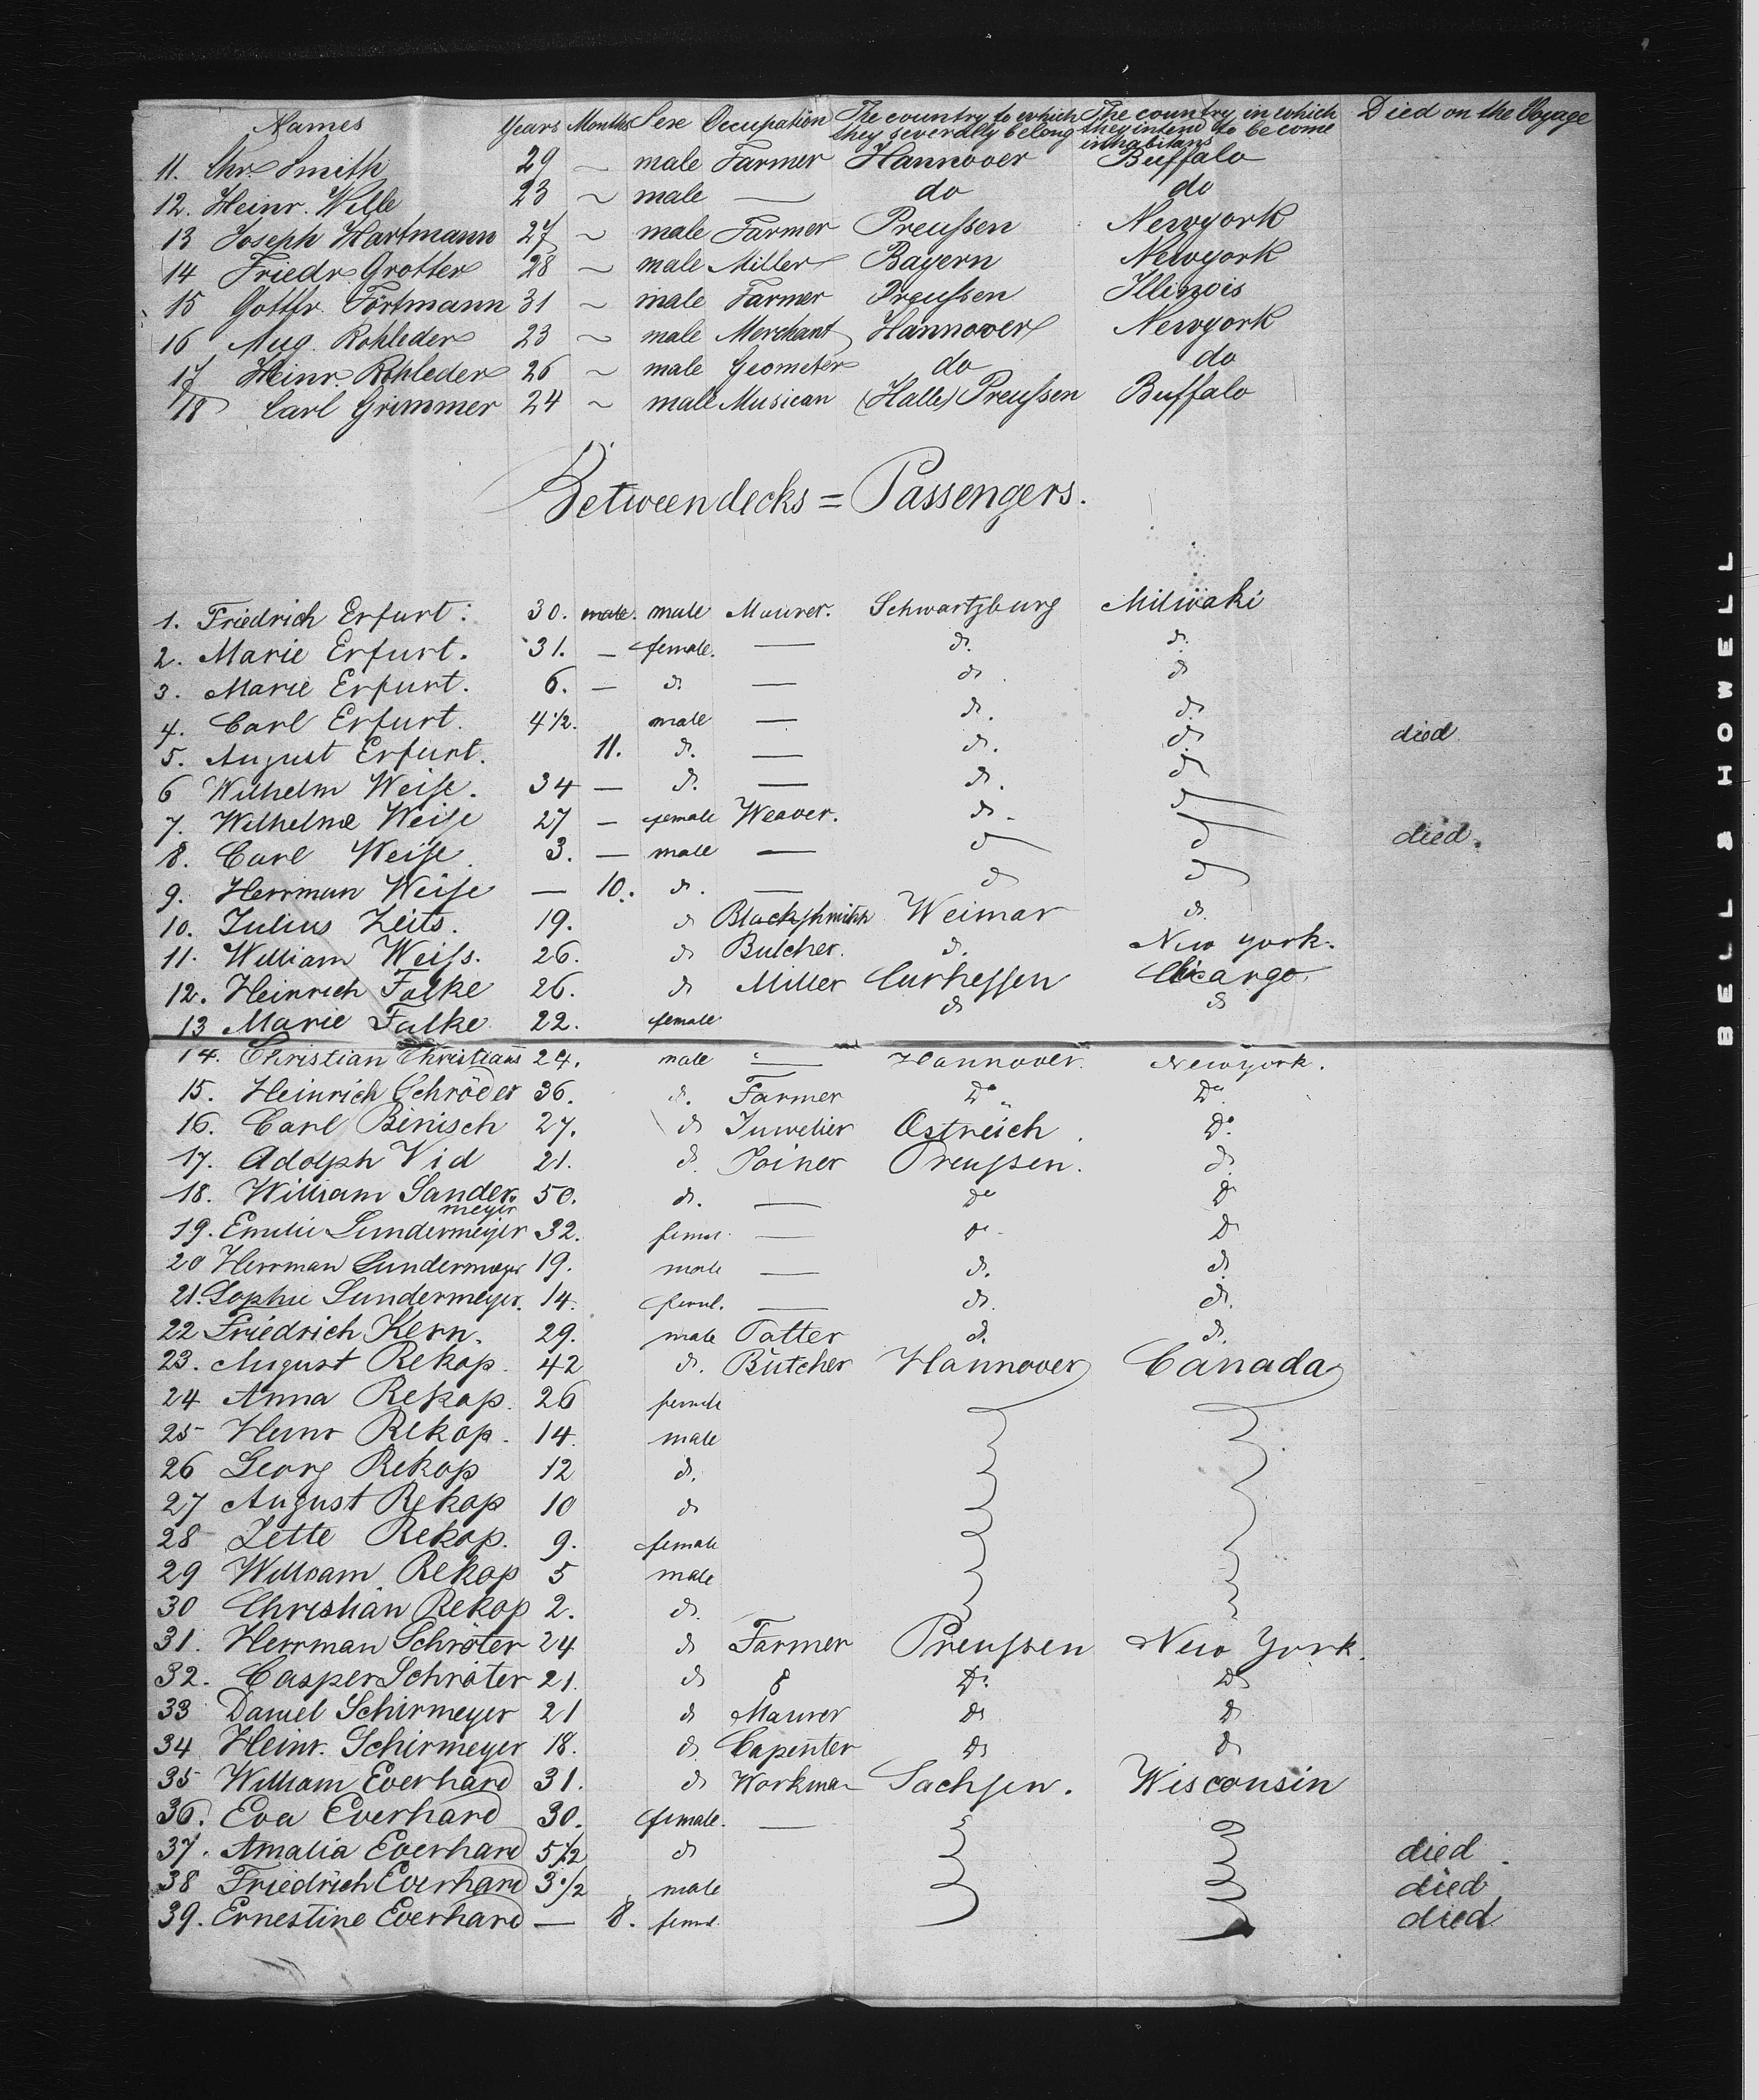 Names Years Months Sexe Occupation The country to which they severally belong The country in which they intend to become inhabitans Died on the Voyage
11. Chr. Smith 29 ~ male Farmer Hannover Buffalo
12. Heinr. Wille 23 ~ male — do do
13 Joseph Hartmann 27 ~ male Farmer Preußen Newyork
14 Friedr. Grotter 28 ~ male Miller Bayern Newyork
15 Gottfr. Förtmann 31 ~ male Farmer Preußen Illinois
16 Aug. Rohleder 23 ~ male Merchant Hannover Newyork
17 Heinr. Rohleder 26 ~ male Geometer do do
18 Carl Grimmer 24 ~ male Musican (Halle) Preußen Buffalo
Betweendecks = Passengers.
1. Friedrich Erfurt: 30. male. male Maurer. Schwartzburg Milwaki
2. Marie Erfurt. 31. — female. — do. do.
3. Marie Erfurt. 6. — do. — do. do
4. Carl Erfurt. 4 1/2. male — do. do.
5. August Erfurt. 11. do. — do. do. died
6 Wilhelm Weiße. 34 — do. — do. do
7. Wilhelme Weiße 27 — female Weaver. do. do
8. Carl Weiße. 3. — male — do do died.
9. Herrman Weiße — 10. do. — do do
10. Julius Zeits. 19. do Blackshmith Weimar do.
11. William Weiß. 26. do Butcher. do. New York.
12. Heinrich Falke 26. do Miller Curhessen Chicargo
13 Marie Falke 22. female do do
14. Christian Christians 24. male — Hannover. Newyork.
15. Heinrich Schröder 36. do. Farmer Do. Do.
16. Carl Binisch 27. do Juwelier Östreich. Do.
17. Adolph Vid 21. do. Joiner Preussen. do.
18. William Sandermeyer 50. do. — Do Do
19. Emilie Sundermeijer 32. femal. — Do. Do
20 Herrman Sundermeyer 19. male — do. do.
21. Sophie Sundermeyer. 14. femal. — do. do.
22 Friedrich Kern. 29. male Potter do. do.
23. August Rekop. 42 do. Butcher Hannover Canada
24 Anna Rekop. 26 female
25 Heinr Rekop. 14. male
26 Georg Rekop 12 do.
27 August Rekop 10 do
28 Jette Rekop. 9. female
29 William Rekop 5 male
30 Christian Rekop 2. do.
31. Herrman Schröter 24 do Farmer Preussen New York.
32. Casper Schröter 21. do do Do. Do
33 Daniel Schirmeyer 21 do Maurer Do Do
34 Heinr. Schirmeyer 18. do. Capenter Do do
35 William Everhard 31. do Workman Sachsen. Wisconsin
36. Eva Everhard 30. female. —
37. Amalia Everhard 5 1/2 do died.
38 Friedrich Everhard 3 1/2 male died
39. Ernestine Everhard — 8. femal. died
BELL & HOWELL